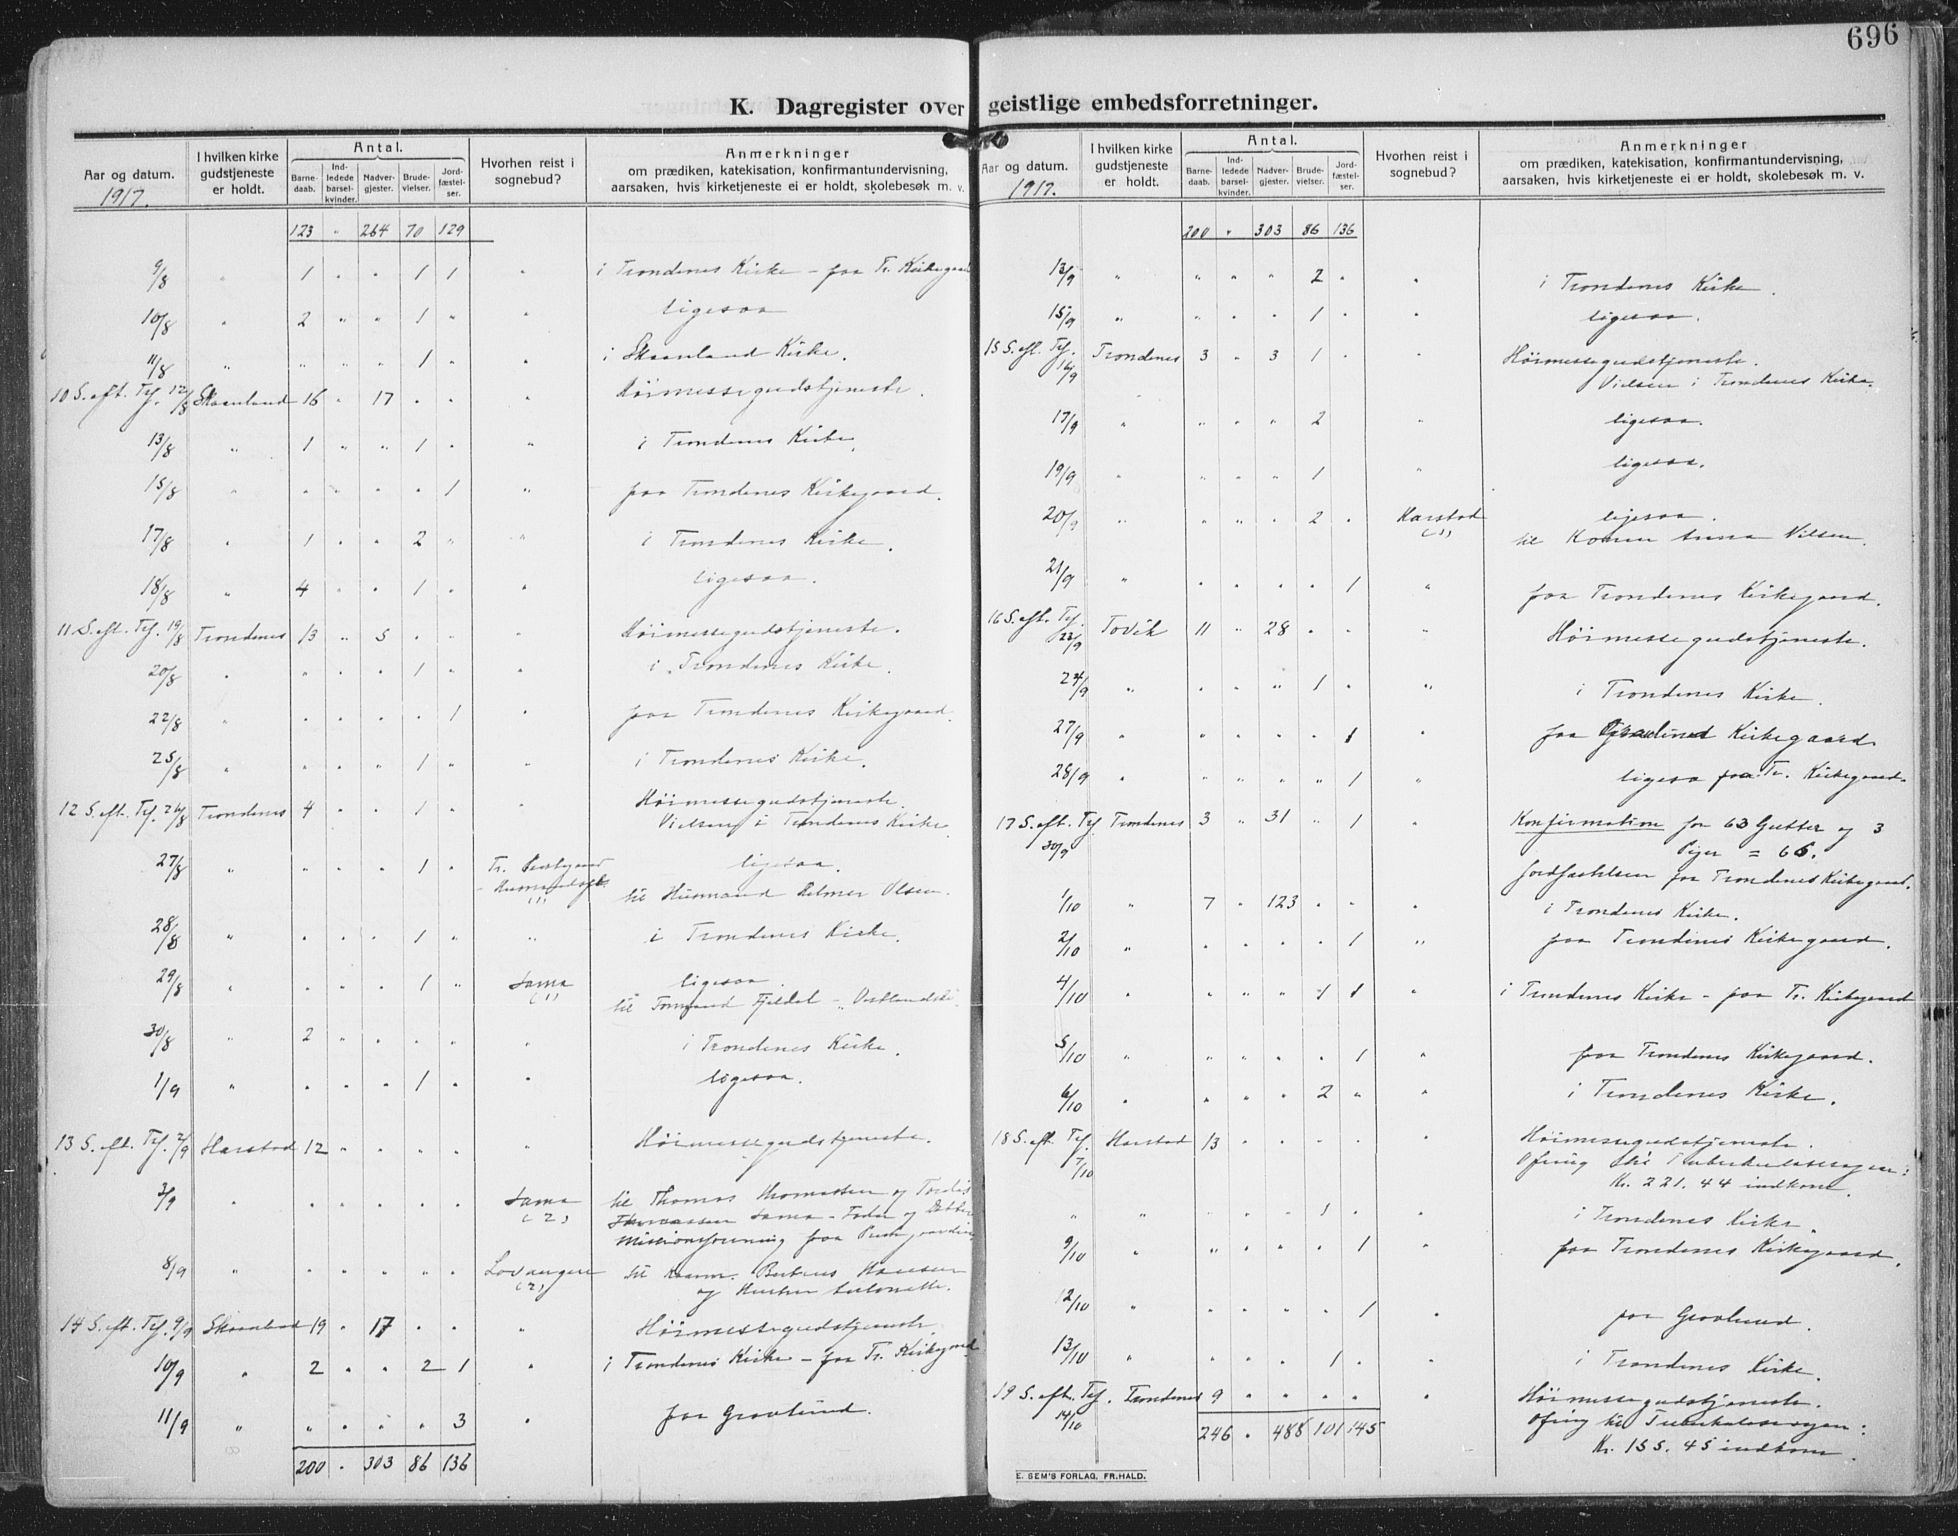 696
K. Dagregister over geistlige embedsforretninger.
Aar og datum. 1917.
I hvilken kirke gudstjeneste er holdt.
Antal.
Barnedaab. Indledede barselkvinder. Nadvergjester. Brudevielser. Jordfæstelser.
Hvorhen reist i sognebud?
Anmerkninger
om prædiken, katekisation, konfirmantundervisning,
aarsaken, hvis kirketjeneste ei er holdt, skolebesøk m. v.
123 " 264 70 129
9/8 " 1 " " 1 1 " i Trondenes Kirke - paa Tr. Kirkegaard
10/8 " 2 " " 1 " " ligesaa
11/8 " " " " 1 " " i Skaanland Kirke.
10 S. eft. Tf. 12/8 Skaanland 16 " 17 " " " Høimessegudstjeneste.
13/8 " 1 " " 1 " " i Trondenes Kirke.
15/8 " " " " " 1 " paa Trondenes Kirkegaard.
17/8 " 1 " " 2 " " i Trondenes Kirke.
18/8 " 4 " " 1 " " ligesaa.
11 S. eft. Tf. 19/8 Trondenes 13 " 5 " " " Høimessegudstjeneste.
20/8 " " " " 1 " " i Trondenes Kirke.
22/8 " " " " " 1 " paa Trondenes Kirkegaard.
25/8 " " " " 1 " " i Trondenes Kirke.
12 S. eft. Tf. 26/8 Trondenes 4 " " 1 " " Høimessegudstjeneste.
Vielsen i Trondenes Kirke.
27/8 " " " " 1 " Tr. Prestegaard ligesaa.
(1) til Husmand Olsen.
28/8 " " " " 1 " " i Trondenes Kirke.
29/8 " " " " 1 " Sama ligesaa.
(1) til Fjeldal
30/8 " 2 " " " " " i Trondenes Kirke.
1/9 " " " " 1 " " ligesaa.
13 S. eft. Tf. 2/9 Harstad 12 " " " " " Høimessegudstjeneste.
3/9 " " " " " " Sama til Thomas Thomassen og
(2) Thomassen Sama - Fader og Datter
Missionsforening paa
8/9 " " " " " " Lovangere til
(2) og Hustru
14 S. eft. Tf. 9/9 Skaanland 19 " 17 " " " Høimessegudstjeneste.
10/9 " 2 " " 2 1 " i Trondenes Kirke - paa Tr. Kirkegaard
11/9 " " " " " 3 " paa Gravlund.
200 " 303 86 136
Aar og datum. 1917.
I hvilken kirke gudstjeneste er holdt.
Antal.
Barnedaab. Indledede barselkvinder. Nadvergjester. Brudevielser. Jordfæstelser.
Hvorhen reist i sognebud?
Anmerkninger
om prædiken, katekisation, konfirmantundervisning,
aarsaken, hvis kirketjeneste ei er holdt, skolebesøk m. v.
200 " 303 86 136
13/9 " " " " 2 " " i Trondenes Kirke.
15/9 " " " " 1 " " ligesaa.
15 S. eft. Tf. 16/9 Trondenes 3 " 3 1 " " Høimessegudstjeneste.
Vielsen i Trondenes Kirke.
17/9 " " " " 2 " " ligesaa.
19/9 " " " " 1 " " ligesaa.
20/9 " " " " 2 " Harstad ligesaa.
(1) til Anna Nilsen.
21/9 " " " " " 1 " paa Trondenes Kirkegaard.
16 S. eft. Tf. 23/9 Tovik 11 " 28 " " " Høimessegudstjeneste.
24/9 " " " " 1 " " i Trondenes Kirke.
27/9 " " " " " 1 " paa Gravlund Kirkegaard
28/9 " " " " " 1 " ligesa paa Tr. Kirkegaard.
17 S. eft. Tf. 30/9 Trondenes 3 " 31 " 1 " Konfirmation for 63 Gutter og 3
Piger = 66.
Jordfæstelsen paa Trondenes Kirkegaard.
1/10 " 7 " 123 " " " i Trondenes Kirke.
2/10 " " " " " 1 " paa Trondenes Kirkegaard.
4/10 " " " " 1 1 " i Trondenes Kirke - paa Tr. Kirkegaard
5/10 " " " " " 1 " paa Trondenes Kirkegaard.
6/10 " " " " 2 " " i Trondenes Kirke.
18 S. eft. Tf. 7/10 Harstad 13 " " " " " Høimessegudstjeneste.
Ofring til Tuberkulosesagen:
Kr. 221.44 indkom.
" " " " " 1 " " i Trondenes Kirke.
9/10 " " " " " 1 " paa Trondenes Kirkegaard.
12/10 " " " " " 1 " paa Gravlund.
13/10 " " " " 1 " " i Trondenes Kirke.
19 S. eft. Tf. 14/10 Trondenes 9 " " " " " Høimessegudstjeneste.
Ofring til Tuberkulosesagen:
Kr. 155.45 indkom
246 " 488 101 145
E. SEM'S FORLAG, FR.HALD.